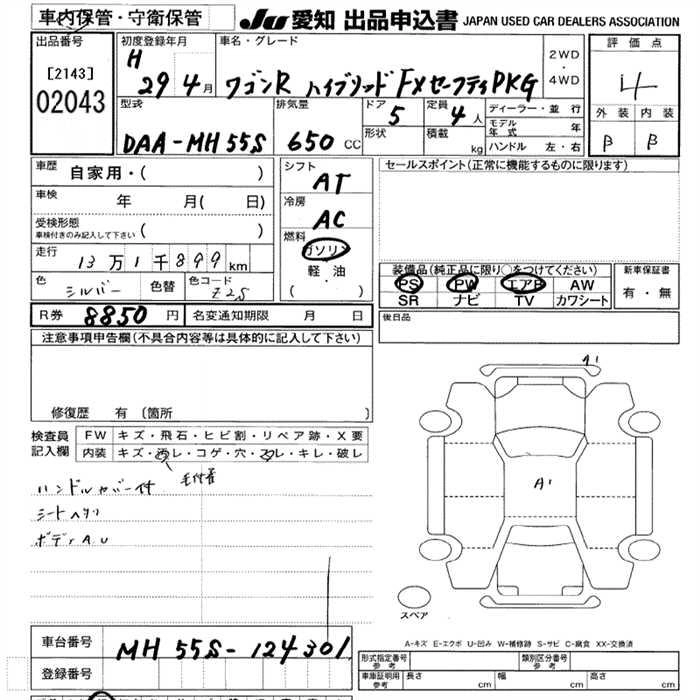 車内保管・守衛保管
JU 愛知 出品申込書 JAPAN USED CAR DEALERS ASSOCIATION
出品番号
[2143]
02043
初度登録年月
H 29 4月
車名・グレード
ワゴンR ハイブリッドFXセーフティPKG
2WD
・
4WD
評価点
4
外装 内装
B B
型式
DAA-MH55S
排気量
650 CC
ドア 5
形状
定員 4人
積載 kg
ディーラー・並行
モデル年式 年
ハンドル 左・右
車歴 自家用・( )
車検 年 月( 日)
受検形態
車検付きのみ記入して下さい ( )
走行 13万1千899km
色 シルバー 色替 色コード Z2S
シフト AT
冷房 AC
燃料 ガソリン
軽・油
( )
セールスポイント(正常に機能するものに限ります)
装備品(純正品に限り○をつけてください)
PS PW エアB AW
SR ナビ TV カワシート
新車保証書
有・無
R券 8850円 名変通知期限 月 日
後日品
注意事項申告欄(不具合内容等は具体的に記入して下さい)
修復歴 有 [箇所 ]
検査員記入欄
FW キズ・飛石・ヒビ割・リペア跡・X要
内装 キズ・汚レ・コゲ・穴・スレ・キレ・破レ
毛付着
ハンドルカバー付
シートヘタリ
ボディAU
A1
A1
スペア
A-キズ E-エクボ U-凹み W-補修跡 S-サビ C-腐食 XX-交換済
車台番号 MH55S-124301
登録番号
形式指定番号 参考 類別区分番号 参考
車庫証明用 参考 長さ cm 幅 cm 高さ cm